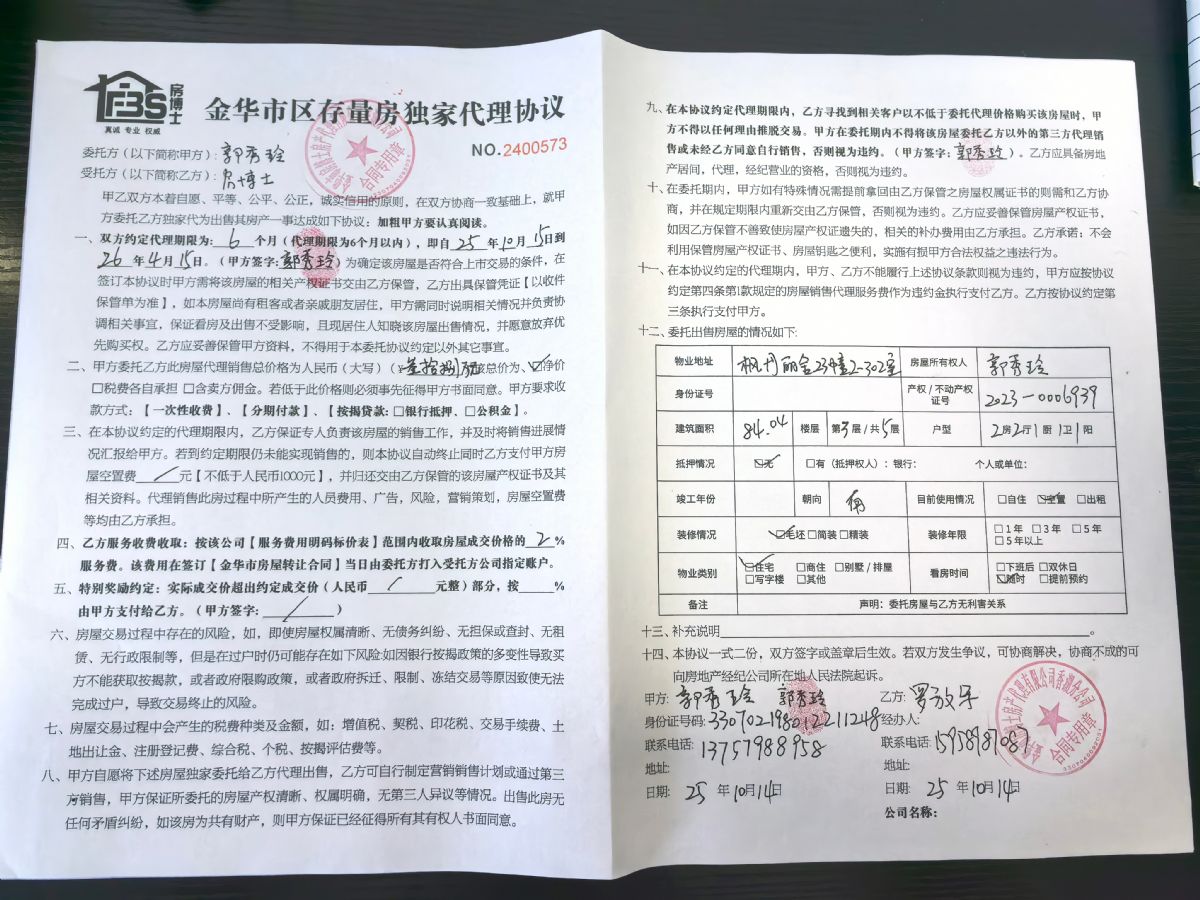 FBS
房博士
真诚 专业 权威
金华市区存量房独家代理协议
NO.2400573
委托方（以下简称甲方）: 郭秀玲
受托方（以下简称乙方）: 房博士
甲乙双方本着自愿、平等、公平、公正，诚实信用的原则，在双方协商一致基础上，就甲
方委托乙方独家代为出售其房产一事达成如下协议：加粗甲方要认真阅读。
一、双方约定代理期限为: 6 个月（代理期限为6个月以内），即自 25 年10月 15日到
26 年 4月 15日。（甲方签字: 郭秀玲）为确定该房屋是否符合上市交易的条件，在
签订本协议时甲方需将该房屋的相关产权证书交由乙方保管，乙方出具保管凭证【以收件
保管单为准】，如本房屋尚有租客或者亲戚朋友居住，甲方需同时说明相关情况并负责协
调相关事宜，保证看房及出售不受影响，且现居住人知晓该房屋出售情况，并愿意放弃优
先购买权。乙方应妥善保管甲方资料，不得用于本委托协议约定以外其它事宜。
二、甲方委托乙方此房屋代理销售总价格为人民币（大写）（ 该总价为、☑净价
□税费各自承担 □含卖方佣金。若低于此价格则必须事先征得甲方书面同意。甲方要求收
款方式：【一次性收费】、【分期付款】、【按揭贷款: □银行抵押、□公积金】。
三、在本协议约定的代理期限内，乙方保证专人负责该房屋的销售工作，并及时将销售进展情
况汇报给甲方。若到约定期限仍未能实现销售的，则本协议自动终止同时乙方支付甲方房
屋空置费 / 元【不低于人民币1000元】，并归还交由乙方保管的该房屋产权证书及其
相关资料。代理销售此房过程中所产生的人员费用、广告，风险，营销策划，房屋空置费
等均由乙方承担。
四、乙方服务收费收取：按该公司【服务费用明码标价表】范围内收取房屋成交价格的 2 %
服务费。该费用在签订【金华市房屋转让合同】当日由委托方打入受托方公司指定账户。
五、特别奖励约定：实际成交价超出约定成交价（人民币 / 元整）部分，按____%
由甲方支付给乙方。（甲方签字: / ）
六、房屋交易过程中存在的风险，如，即使房屋权属清晰、无债务纠纷、无担保或查封、无租
赁、无行政限制等，但是在过户时仍可能存在如下风险:如因银行按揭政策的多变性导致买
方不能获取按揭款，或者政府限购政策，或者政府拆迁、限制、冻结交易等原因致使无法
完成过户，导致交易终止的风险。
七、房屋交易过程中会产生的税费种类及金额，如：增值税、契税、印花税、交易手续费、土
地出让金、注册登记费、综合税、个税、按揭评估费等。
八、甲方自愿将下述房屋独家委托给乙方代理出售，乙方可自行制定营销销售计划或通过第三
方销售，甲方保证所委托的房屋产权清晰、权属明确，无第三人异议等情况。出售此房无
任何矛盾纠纷，如该房为共有财产，则甲方保证已经征得所有其有权人书面同意。
九、在本协议约定代理期限内，乙方寻找到相关客户以不低于委托代理价格购买该房屋时，甲
方不得以任何理由推脱交易。甲方在委托期内不得将该房屋委托乙方以外的第三方代理销
售或未经乙方同意自行销售，否则视为违约。（甲方签字: 郭秀玲）。乙方应具备房地
产居间，代理，经纪营业的资格，否则视为违约。
十、在委托期内，甲方如有特殊情况需提前拿回由乙方保管之房屋权属证书的则需和乙方协
商，并在规定期限内重新交由乙方保管，否则视为违约。乙方应妥善保管房屋产权证书，
如因乙方保管不善致使房屋产权证遗失的，相关的补办费用由乙方承担。乙方承诺：不会
利用保管房屋产权证书、房屋钥匙之便利，实施有损甲方合法权益之违法行为。
十一、在本协议约定的代理期内，甲方、乙方不能履行上述协议条款则视为违约，甲方应按协议
约定第四条第1款规定的房屋销售代理服务费作为违约金执行支付乙方。乙方按协议约定第
三条执行支付甲方。
十二、委托出售房屋的情况如下:
物业地址 枫丹丽舍23幢2-302室 房屋所有权人 郭秀玲
身份证号 产权 / 不动产权证号 2023-0006939
建筑面积 84.04 楼层 第3层 / 共5层 户型 2房2厅1厨1卫1阳
抵押情况 ☑无 □有（抵押权人）：银行： 个人或单位：
竣工年份 朝向 南 目前使用情况 □自住 ☑空置 □出租
装修情况 ☑毛坯 □简装 □精装 装修年限 □1年 □3年 □5年 □5年以上
物业类别 ☑住宅 □商住 □别墅 / 排屋 □写字楼 □其他 看房时间 □下班后 □双休日 ☑随时 □提前预约
备注 声明：委托房屋与乙方无利害关系
十三、补充说明____。
十四、本协议一式二份，双方签字或盖章后生效。若双方发生争议，可协商解决，协商不成的可
向房地产经纪公司所在地人民法院起诉。
甲方: 郭秀玲 郭秀玲
身份证号码: 330702198012211248
联系电话: 13757988958
地址:
日期: 25 年10月14日
乙方:
经办人:
联系电话: 15958187087
地址:
日期: 25 年10月14日
公司名称:
合同专用章
合同专用章